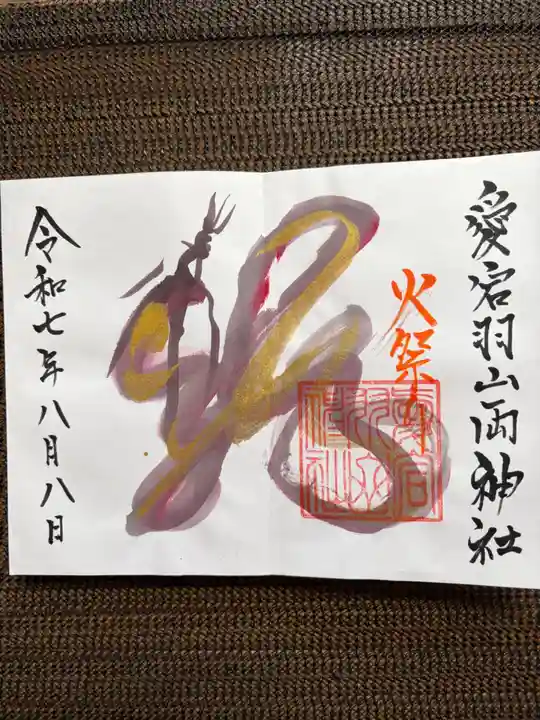 愛宕羽山両神社
火祭り
令和七年八月八日